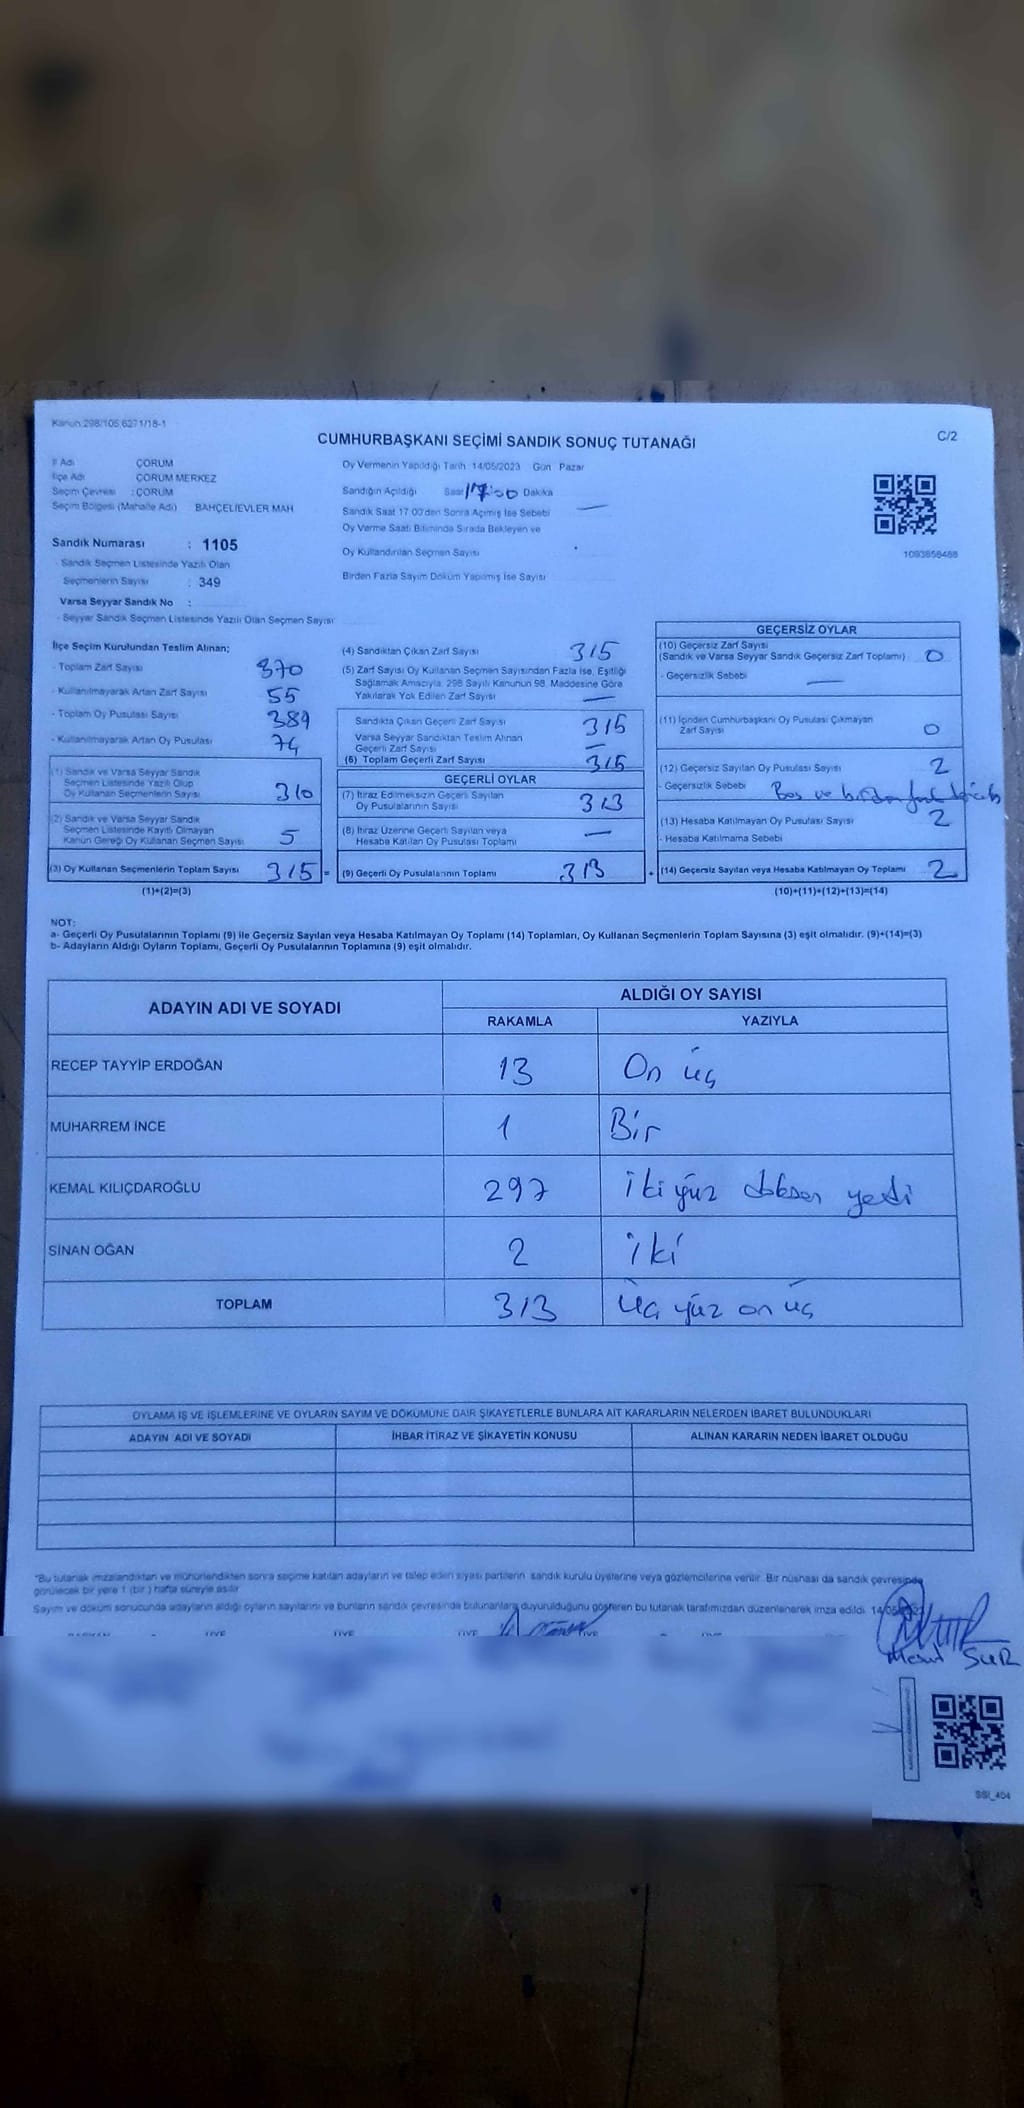 Kanun:298/105,6271/18-1
C/2
CUMHURBAŞKANI SEÇİMİ SANDIK SONUÇ TUTANAĞI
İl Adı ÇORUM
İlçe Adı ÇORUM MERKEZ
Seçim Çevresi : ÇORUM
Seçim Bölgesi (Mahalle Adı) BAHÇELİEVLER MAH
Sandık Numarası : 1105
- Sandık Seçmen Listesinde Yazılı Olan
Seçmenlerin Sayısı : 349
Varsa Seyyar Sandık No :
- Seyyar Sandık Seçmen Listesinde Yazılı Olan Seçmen Sayısı
Oy Vermenin Yapıldığı Tarih 14/05/2023 Gün Pazar
Sandığın Açıldığı Saat 17:00 Dakika
Sandık Saat 17.00'den Sonra Açımış İse Sebebi —
Oy Verme Saati Bitiminde Sırada Bekleyen ve
Oy Kullandırılan Seçmen Sayısı
Birden Fazla Sayım Döküm Yapılmış İse Sayısı
1093858488
İlçe Seçim Kurulundan Teslim Alınan;
- Toplam Zarf Sayısı 370
- Kullanılmayarak Artan Zarf Sayısı 55
- Toplam Oy Pusulası Sayısı 389
- Kullanılmayarak Artan Oy Pusulası 74
(1) Sandık ve Varsa Seyyar Sandık
Seçmen Listesinde Yazılı Olup
Oy Kullanan Seçmenlerin Sayısı 310
(2) Sandık ve Varsa Seyyar Sandık
Seçmen Listesinde Kayıtlı Olmayan
Kanun Gereği Oy Kullanan Seçmen Sayısı 5
(3) Oy Kullanan Seçmenlerin Toplam Sayısı 315 =
(1)+(2)=(3)
(4) Sandıktan Çıkan Zarf Sayısı 315
(5) Zarf Sayısı Oy Kullanan Seçmen Sayısından Fazla İse, Eşitliği
Sağlamak Amacıyla, 298 Sayılı Kanunun 98. Maddesine Göre
Yakılarak Yok Edilen Zarf Sayısı —
Sandıkta Çıkan Geçerli Zarf Sayısı 315
Varsa Seyyar Sandıktan Teslim Alınan
Geçerli Zarf Sayısı —
(6) Toplam Geçerli Zarf Sayısı 315
GEÇERLİ OYLAR
(7) İtiraz Edilmeksizin Geçerli Sayılan
Oy Pusulalarının Sayısı 313
(8) İtiraz Üzerine Geçerli Sayılan veya
Hesaba Katılan Oy Pusulası Toplamı —
(9) Geçerli Oy Pusulalarının Toplamı 313 +
GEÇERSİZ OYLAR
(10) Geçersiz Zarf Sayısı
(Sandık ve Varsa Seyyar Sandık Geçersiz Zarf Toplamı) 0
- Geçersizlik Sebebi —
(11) İçinden Cumhurbaşkanı Oy Pusulası Çıkmayan
Zarf Sayısı 0
(12) Geçersiz Sayılan Oy Pusulası Sayısı 2
- Geçersizlik Sebebi Boş ve birden fazla
(13) Hesaba Katılmayan Oy Pusulası Sayısı 2
- Hesaba Katılmama Sebebi
(14) Geçersiz Sayılan veya Hesaba Katılmayan Oy Toplamı 2
(10)+(11)+(12)+(13)=(14)
NOT:
a- Geçerli Oy Pusulalarının Toplamı (9) ile Geçersiz Sayılan veya Hesaba Katılmayan Oy Toplamı (14) Toplamları, Oy Kullanan Seçmenlerin Toplam Sayısına (3) eşit olmalıdır. (9)+(14)=(3)
b- Adayların Aldığı Oyların Toplamı, Geçerli Oy Pusulalarının Toplamına (9) eşit olmalıdır.
ADAYIN ADI VE SOYADI
ALDIĞI OY SAYISI
RAKAMLA YAZIYLA
RECEP TAYYİP ERDOĞAN 13 On üç
MUHARREM İNCE 1 Bir
KEMAL KILIÇDAROĞLU 297 iki yüz doksan yedi
SİNAN OĞAN 2 iki
TOPLAM 313 üç yüz on üç
OYLAMA İŞ VE İŞLEMLERİNE VE OYLARIN SAYIM VE DÖKÜMÜNE DAİR ŞİKAYETLERLE BUNLARA AİT KARARLARIN NELERDEN İBARET BULUNDUKLARI
ADAYIN ADI VE SOYADI İHBAR İTİRAZ VE ŞİKAYETİN KONUSU ALINAN KARARIN NEDEN İBARET OLDUĞU
"Bu tutanak imzalandıktan ve mühürlendikten sonra seçime katılan adayların ve talep eden siyasi partilerin sandık kurulu üyelerine veya gözlemcilerine verilir. Bir nüshası da sandık çevresinde
görülecek bir yere 1 (bir ) hafta süreyle asılır
Sayım ve döküm sonucunda adayların aldığı oyların sayılarını ve bunların sandık çevresinde bulunanlara duyurulduğunu gösteren bu tutanak tarafımızdan düzenlenerek imza edildi.
SUR
SSI_404